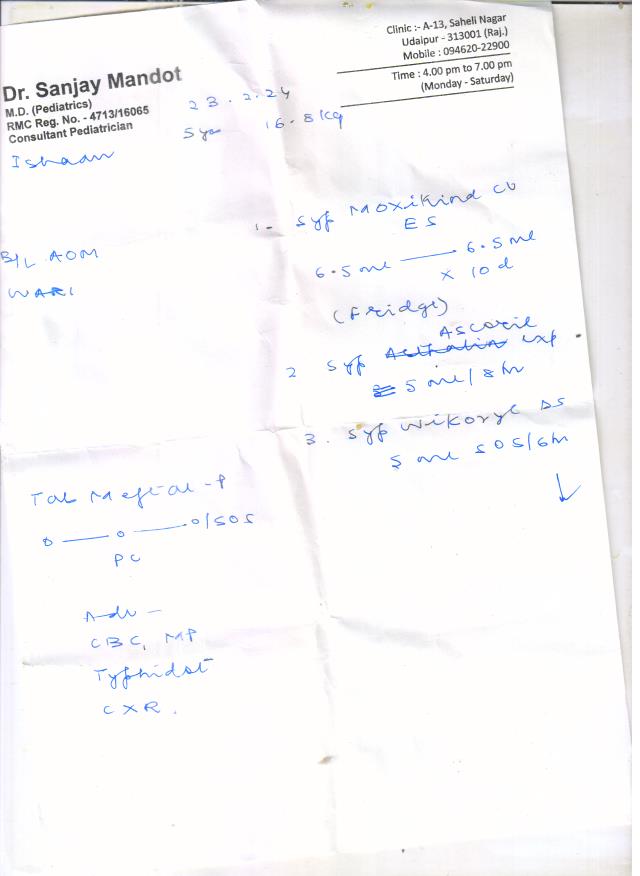 Dr. Sanjay Mandot
M.D. (Pediatrics)
RMC Reg. No. - 4713/16065
Consultant Pediatrician
Clinic :- A-13, Saheli Nagar
Udaipur - 313001 (Raj.)
Mobile : 094620-22900
Time : 4.00 pm to 7.00 pm
(Monday - Saturday)
23.2.24
5 yr 16.8 kg
Ishaan
B/L AOM
WARI
1- Syp Moxikind CV
ES
6.5 ml — 6.5 ml
x 10 d
(Fridge)
Ascoril
2 Syp Asthalin exp
5 ml / 8 hr
3. Syp Wikoryl DS
5 ml SOS/6hr
Tab Meftal-P
0 — 0 — 0/SOS
PC
Adv -
CBC, MP
Typhidot
CXR.